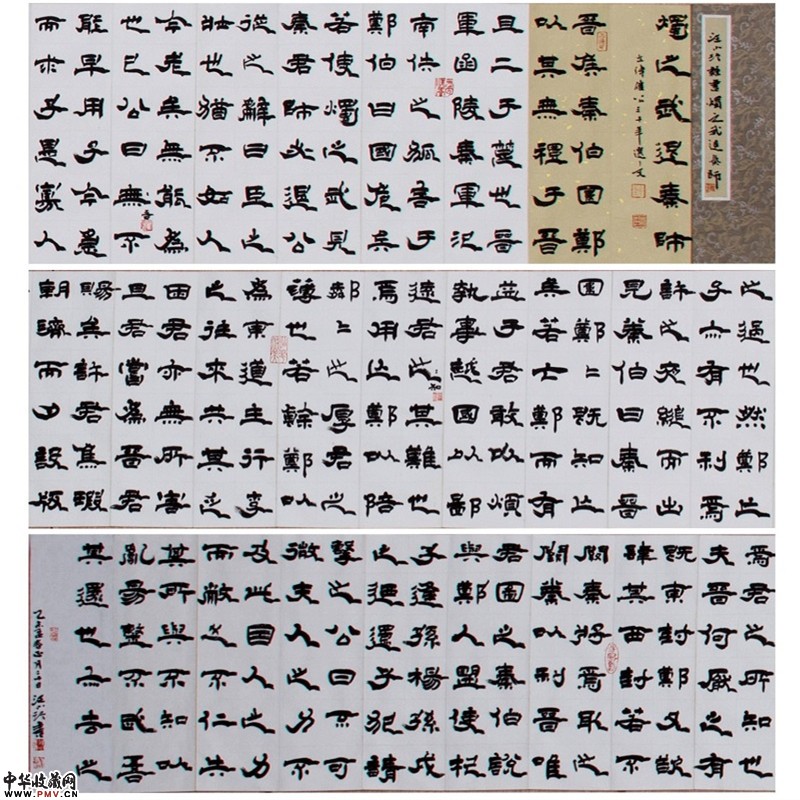 隸書燭之武退秦師
燭之武退秦師
左傳僖公三十年選文
晉侯秦伯圍鄭
以其無禮于晉
且二于楚也晉
軍函陵秦軍氾
南佚之狐言于
鄭伯曰國危矣
若使燭之武見
秦君師必退公
從之辭曰臣之
壯也猶不如人
今老矣無能為
也已公曰無不
吾
能早用子今急
而求子是寡人
之過也然鄭亡
子亦有不利焉
許之夜縋而出
見秦伯曰秦晉
圍鄭〻既知亡
矣若亡鄭而有
益于君敢以煩
執事越國以鄙
遠君此其難也
知
焉用亡鄭以陪
鄰〻之厚君之
薄也若舍鄭以
為東道主行李
之往來共其乏
困君亦無所害
且君嘗為晉君
賜矣許君焦瑕
朝濟而夕設版
焉君之所知也
夫晉何厭之有
既東封鄭又欲
肆其西封若不
闕秦將焉取之
闕秦以利晉唯
君圖之秦伯說
與鄭人盟使杞
子逢孫楊孫戍
之乃還子犯請
擊之公曰不可
微夫人之力不
及此因人之力
而敝之不仁失
其所與不知以
亂易整不武吾
其還也亦去之
中华收藏网
www.PMV.CN